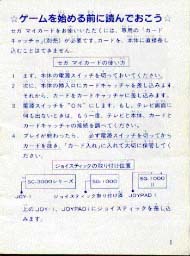 ☆ゲームを始める前に読んでおこう☆
セガ マイカードをお使いいただくには、専用の「カード
キャッチャ」(別売)が必要です。カードを、本体に直接差し
込むことはできません。
セガ マイカードの使い方
1 まず、本体の電源スイッチを切っておいてください。
2 次に、本体の挿入口にカードキャッチャを差し込みます
それから、カードキャッチャにカードを差し込みます。
3 電源スイッチを「ON」にします。もし、テレビ画面に
何も出ないときは、もう一度、テレビと本体、カードと
カードキャッチャの接続を調べてください。
4 プレイが終わったら、必ず電源スイッチを切ってから
カードを抜き、「カード入れ」に入れて大切に保管してく
ださい。
ジョイスティックの取り付け位置
SC-3000シリーズ
SG-1000
SG-1000
II
JOY-1
ジョイスティック取り付け済
JOYPAD 1
上のJOY-1、JOYPAD1にジョイスティックを差し込み
ます。
1